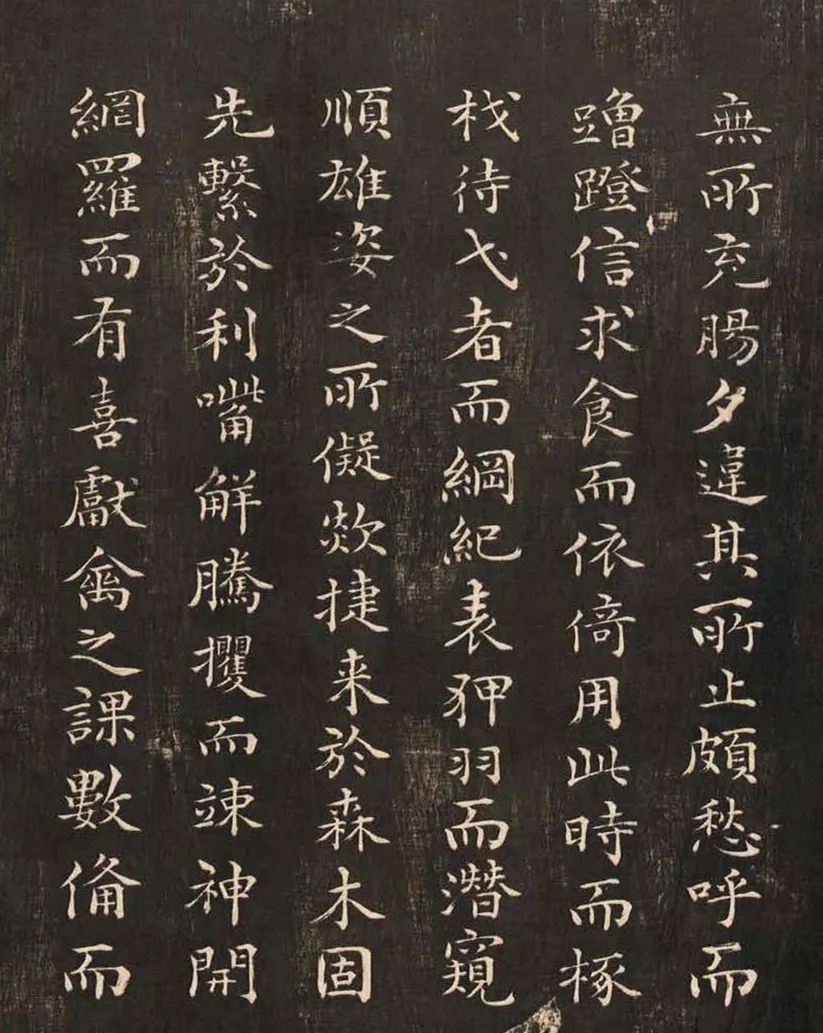 無所充腸夕違其所止頗愁呼而
蹭蹬信求食而依倚用此時而椓
杙待弋者而綱紀表狎羽而潛窺
順雄姿之所儗欻捷来於森木固
先繫於利觜解騰攫而竦神開
網羅而有喜獻禽之課數俻而